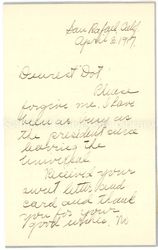 San Rafael, Calif.
April 2, 1917
Dearest Dot,
Please
forgive me. I have
been as busy as
the president since
leaving the
Universal.
Received your
sweet letter and
card and thank
you for your
good wishes. No